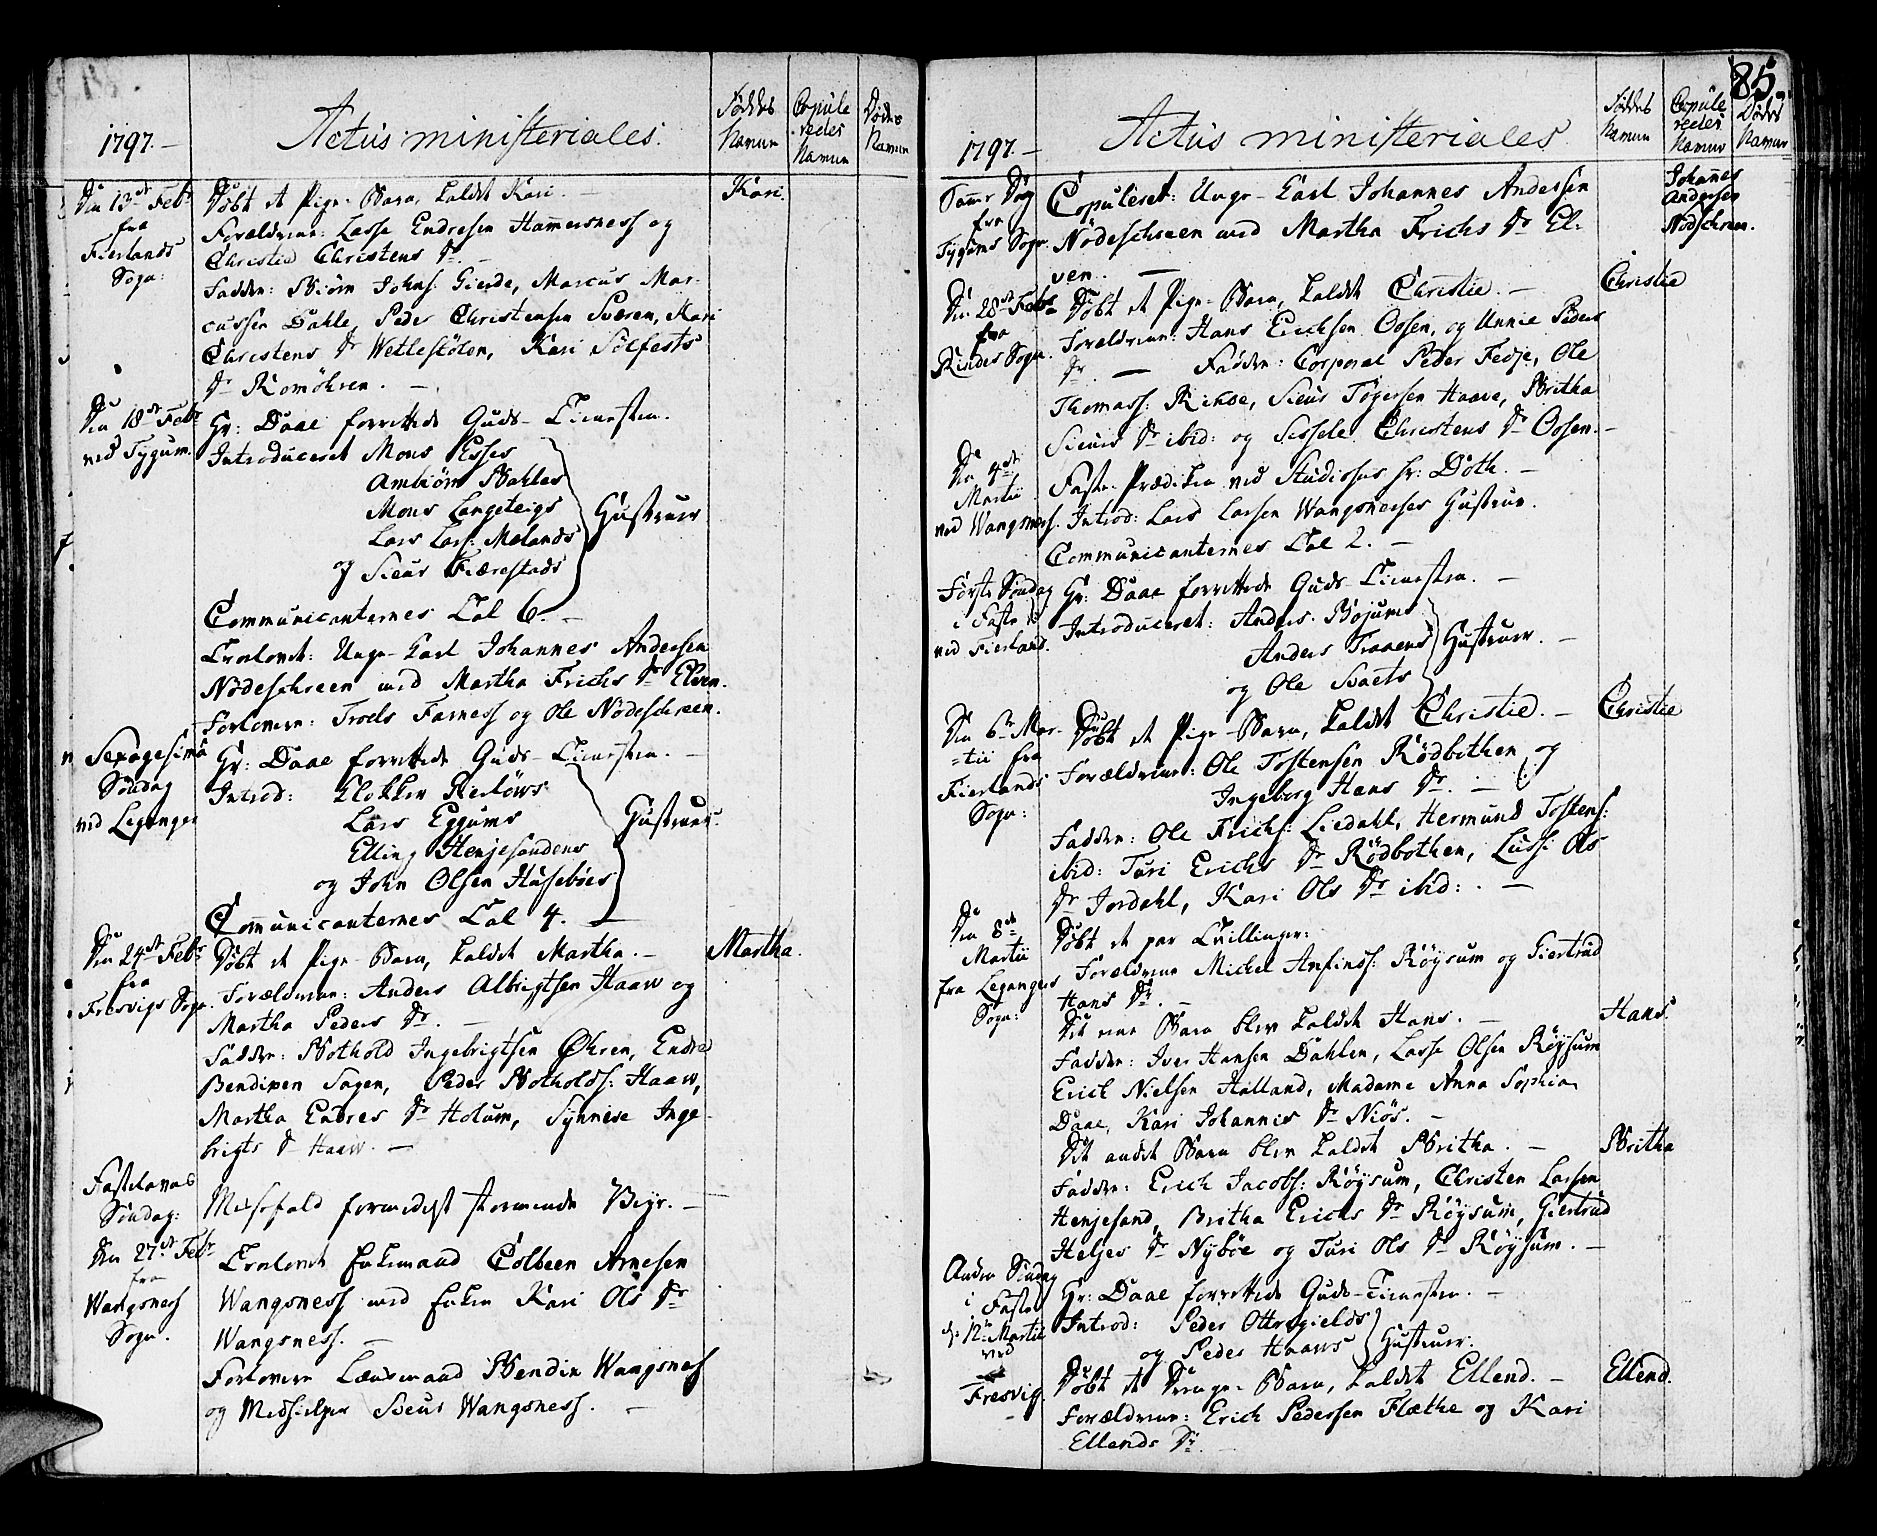 1797.
Actus ministeriales.
Føddes Namne
Copuleredes Namne
Dødes Namne
Den 13de Febr fra Fierlands Sogn:
Døbt et Pige-Barn, kaldet Kari. —
Kari.
Forældrene: Lasse Endresen Hammersness og
Christie Christens Dr. —
Fadder: Biørn Johns: Gierde, Marcus Mar-
cussen Dahle, Peder Christensen Sværen, Kari
Christens Dr Wetlestölen, Kari Sölfests
Dr Romöhren. —
Den 18de Febr ved Tygum.
Hr: Daae forrettede Guds-Tienesten.
Introduceret Mons Esses
Ambiörn Bahles
Mons Langeteigs
Lars Lars: Mælands
og Siur Fiærestads
Hustruer
Communicanternes Tal 6. —
Trolovet: Unge-Karl Johannes Andersen
Nødeschreen med Martha Erichs Dr Elven.
Forlovere: Troels Farness og Ole Nødeschreen.
Sexagesima Söndag ved Leganger
Hr: Daae forrettede Guds-Tienesten. —
Introd: Klokker
Lars Eggums
Elling Henjesandens
og John Olsen Husebøes
Hustruer.
Communicanternes Tal 4. —
Den 24de Febr fra Fresvigs Sogn.
Døbt et Pige-Barn, kaldet Martha. —
Martha.
Forældrene: Anders Albrigtsen Haaw og
Martha Peders Dr. —
Fadder: Bothold Ingebrigtsen Öhren, Endre
Bendixen Sagen, Peder Botholds: Haaw,
Martha Endres Dr Holum, Synneve Inge-
brigts Dr Haaw. —
Fastelavns Söndag:
Messefald formedelst stormende Veyr. —
Den 27de Febr fra Wangsness Sogn.
Trolovet Enkemand Colbeen Arnesen
Wangsness med Enken Kari Ols Dr
Wangsness. —
Forlovere Lænsmand Bendix Wangsness
og Medhielper Siur Wangsness. —
85.
1797. —
Actus ministeriales
Føddes Namne
Copuleredes Namne
Dødes Namne
Samme Dag fra Tygums Sogn.
Copuleret: Unge-Karl Johannes Andersen
Nödeschreen med Martha Erichs Dr El-
ven. —
Johannes Andersen Nödschreen.
Den 28de Febr fra Rinde Sogn.
Døbt et Pige-Barn, kaldet Christie. —
Christie
Forældrene: Hans Erichsen Oosen, og Unnie Peders
Dr. — Fadder: Corporal Peder Fedje, Ole
Thomass: Rinde, Siur Togersen Haave, Britha
Siurs Dr ibid: og Sissele Christens Dr Oosen. —
Den 4de Martii ved Wangsness.
Faste-Prædiken ved Studiosus Hr: Doth. —
Introd: Lars Larsen Wangsnesses Hustrue.
Communicanternes Tal 2. —
Første Søndag i Faste ved Fierland.
Hr: Daae forrettede Guds Tienesten. —
Introduceret: Anders Böjums
Anders Traaens
og Ole Svaets
Hustruer. —
Den 6te Mar-
tii fra Fierlands Sogn:
Døbt et Pige-Barn, kaldet Christie. —
Christie
Forældrene: Ole Tostensen Rödbotnen og
Ingeborg Hans Dr. —
Fadder: Ole Erichs: Liedahl, Hermund Tostens:
ibid: Turi Erichs Dr Rödbothen, Lussi Ols
Dr Jordahl, Kari Ols Dr ibid: . —
Den 8de Martii fra Legangers Sogn:
Døbt et par Tvillinger:
Forældrene Michel Anfinds: Röysum og Giertrud
Hans Dr. —
Det ene Barn blev kaldet Hans. —
Hans.
Fadder: Iver Hansen Dahlen, Lasse Olsen Röysum
Erich Nielsen Halland, Madame Anna Sophia
Daae, Kari Johannis Dr Niös. —
Det andet Barn blev kaldet Britha. —
Britha
Fadder: Erich Jacobs: Röysum, Christen Larsen
Henjesand, Britha Erichs Dr Röysum, Giertrud
Heljes Dr Nybøe og Turi Ols Dr Röysum. —
Anden Söndag i Faste d: 12te Martii ved Fresvig.
Hr: Daae forrettede Guds-Tienesten. —
Introd: Peder
og Peder Haaws
Hustruer.
Døbt et Drenge-Barn, kaldet Ellend. —
Ellend.
Forældrene: Erich Pedersen Flæthe og Kari
Ellends Dr. —